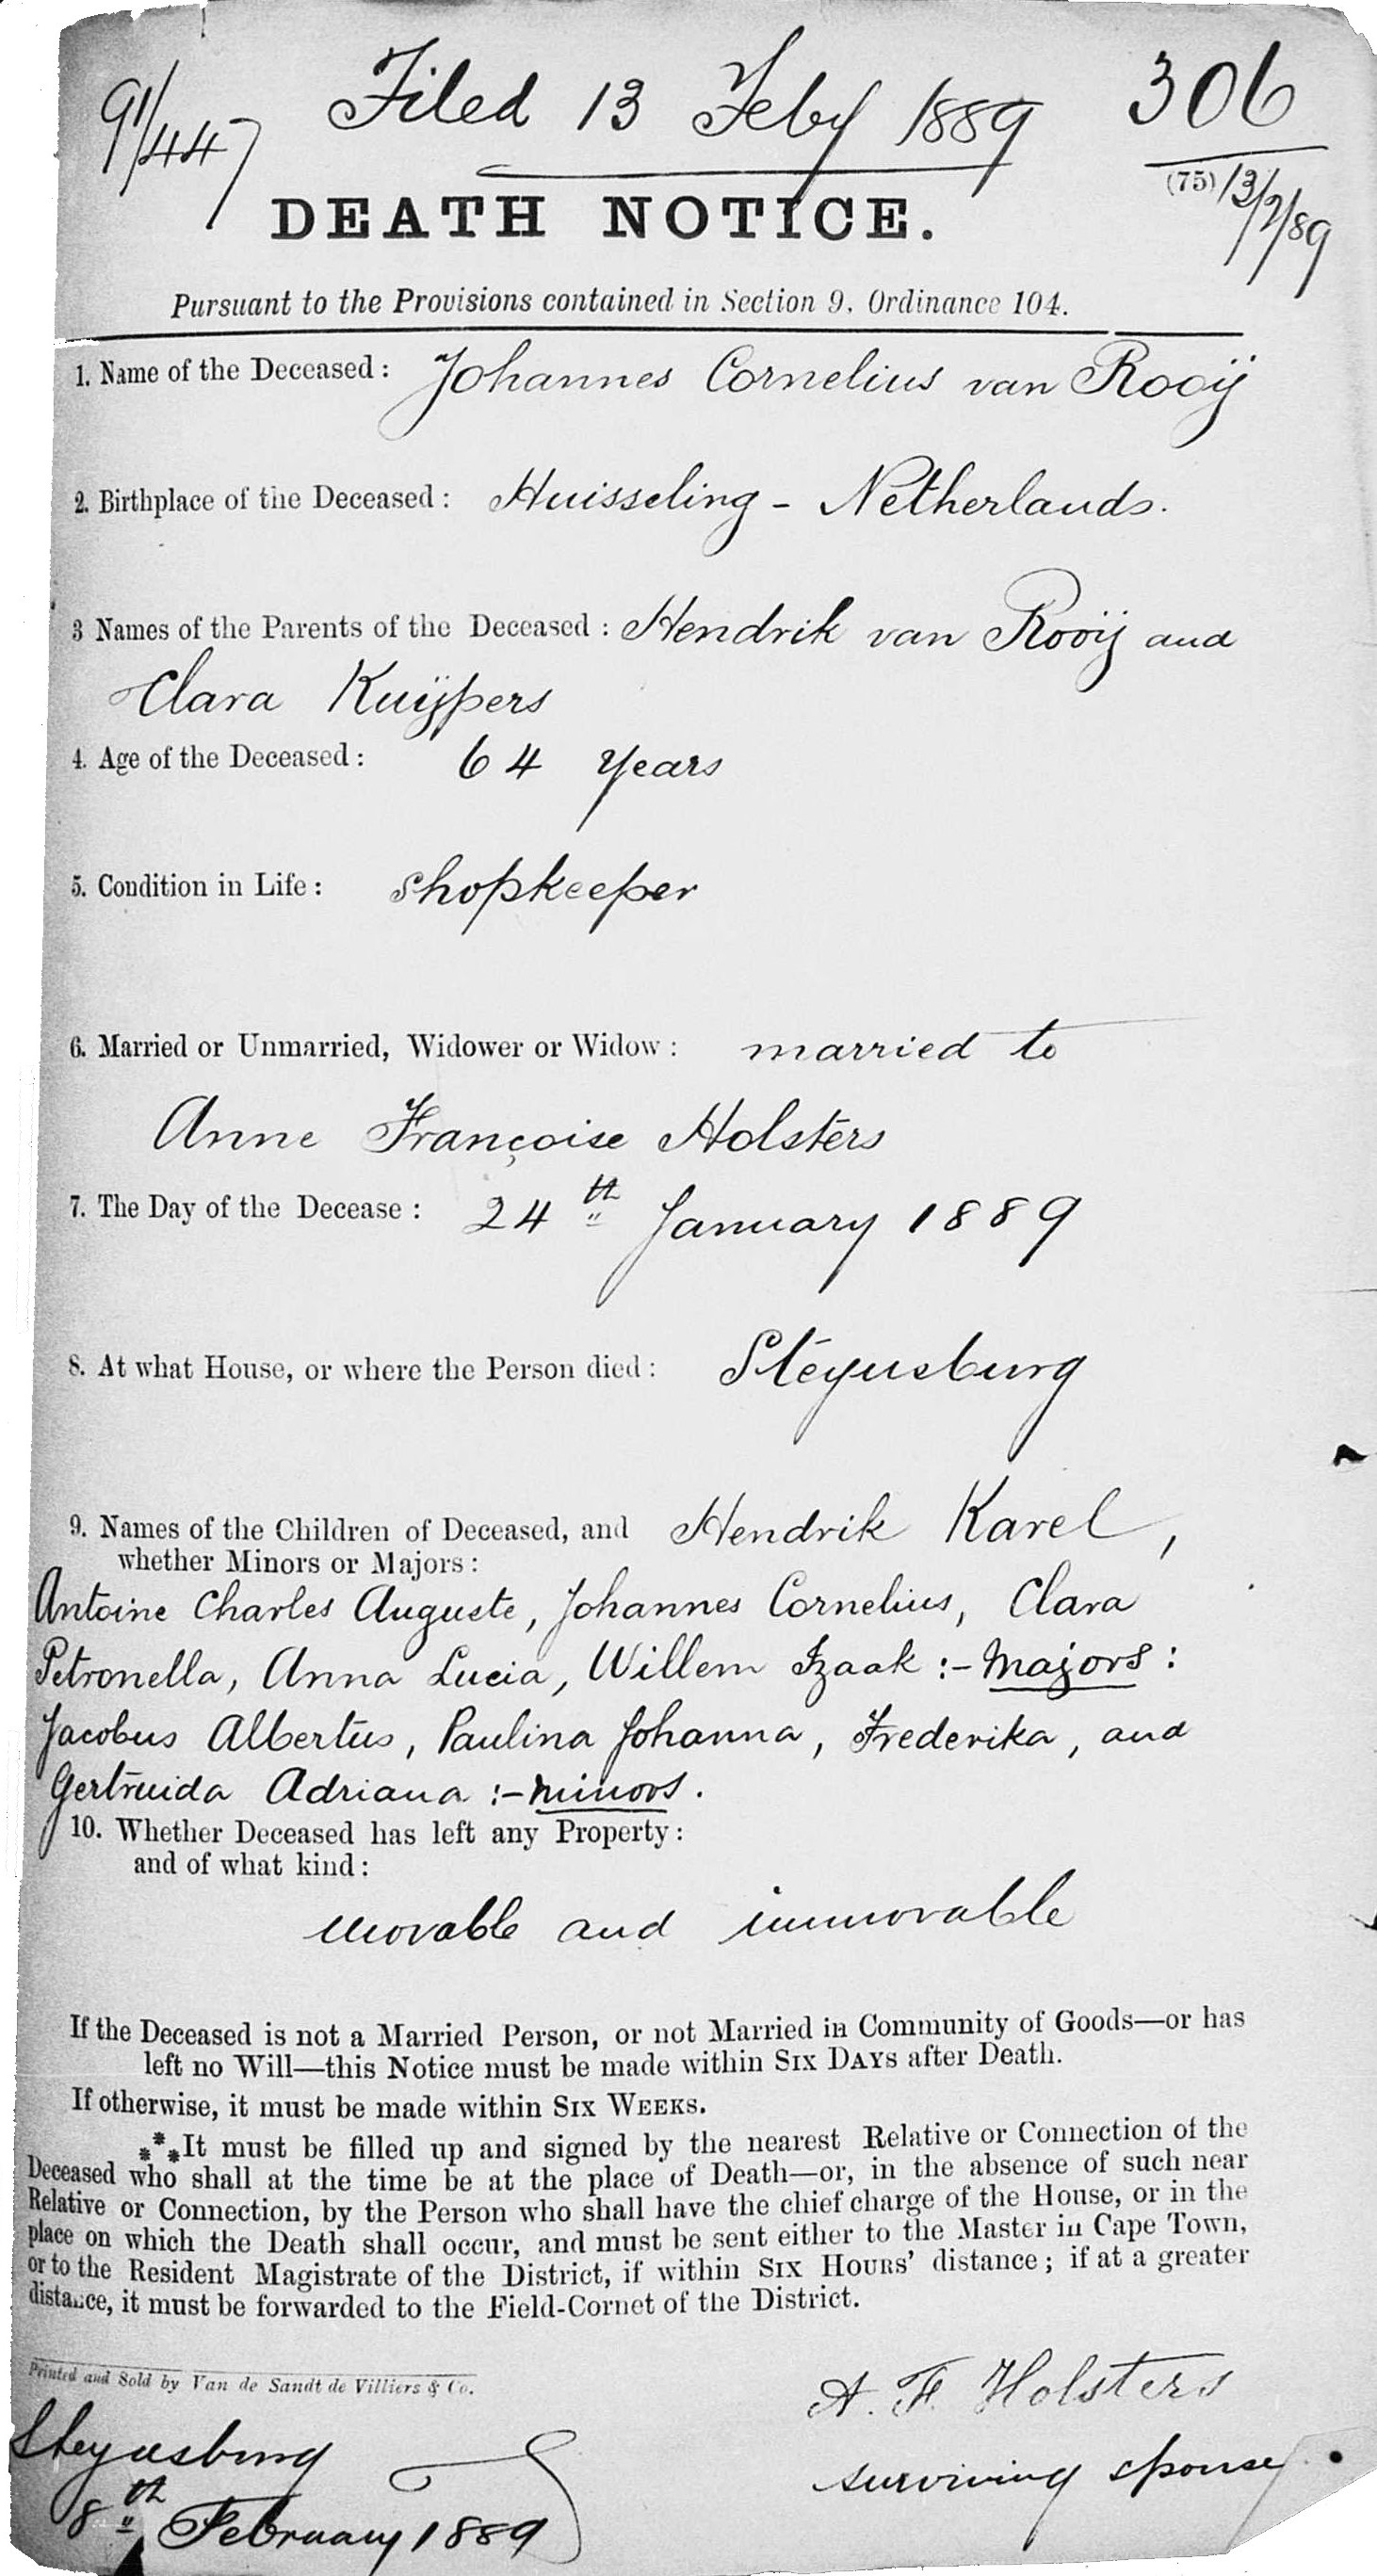 91/447 Filed 13 Feby 1889 306
(75) 13/2/89
DEATH NOTICE.
Pursuant to the Provisions contained in Section 9, Ordinance 104.
1. Name of the Deceased: Johannes Cornelius van Rooij
2. Birthplace of the Deceased: Huisseling - Netherlands.
3 Names of the Parents of the Deceased: Hendrik van Rooij and
Clara Kuijpers
4. Age of the Deceased: 64 years
5. Condition in Life: shopkeeper
6. Married or Unmarried, Widower or Widow: married to
Anne Françoise Holsters
7. The Day of the Decease: 24th January 1889
8. At what House, or where the Person died: Steynsburg
9. Names of the Children of Deceased, and Hendrik Karel,
whether Minors or Majors:
Antoine Charles Auguste, Johannes Cornelius, Clara
Petronella, Anna Lucia, Willem Izaak :- Majors:
Jacobus Albertus, Paulina Johanna, Frederika, and
Gertruida Adriana :- minors.
10. Whether Deceased has left any Property:
and of what kind:
movable and immovable
If the Deceased is not a Married Person, or not Married in Community of Goods—or has
left no Will—this Notice must be made within SIX DAYS after Death.
If otherwise, it must be made within SIX WEEKS.
⁂It must be filled up and signed by the nearest Relative or Connection of the
Deceased who shall at the time be at the place of Death—or, in the absence of such near
Relative or Connection, by the Person who shall have the chief charge of the House, or in the
place on which the Death shall occur, and must be sent either to the Master in Cape Town,
or to the Resident Magistrate of the District, if within SIX HOURS' distance; if at a greater
distance, it must be forwarded to the Field-Cornet of the District.
Printed and Sold by Van de Sandt de Villiers & Co.
A. F. Holsters
surviving spouse
Steynsburg
8th February 1889